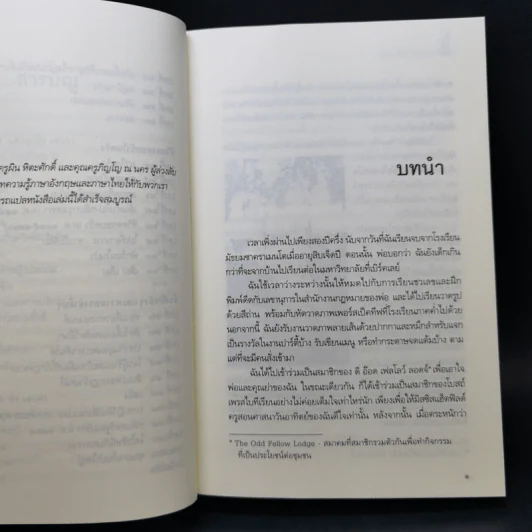 ครูผิน หิตะศักดิ์ และคุณครูภิญโญ ณ นคร ผู้ล่วงลับ
ทความรู้ภาษาอังกฤษและภาษาไทยให้กับพวกเรา
รถแปลหนังสือเล่มนี้ได้สำเร็จสมบูรณ์
บทนำ
เวลาเพิ่งผ่านไปเพียงสองปีครึ่ง นับจากวันที่ฉันเรียนจบจากโรงเรียน
มัธยมซาคราเมนโตเมื่ออายุสิบเจ็ดปี ตอนนั้น พ่อบอกว่า ฉันยังเด็กเกิน
กว่าที่จะจากบ้านไปเรียนต่อในมหาวิทยาลัยที่เบิร์คเลย์
ฉันใช้เวลาว่างระหว่างนั้นให้หมดไปกับการเรียนชวเลขและฝึก
พิมพ์ดีดกับเลขานุการในสำนักงานกฎหมายของพ่อ และได้ไปเรียนวาดรูป
ด้วยสีถ่าน พร้อมกับหัดวาดภาพเพอร์สเป็คทีฟที่โรงเรียนภาคค่ำไปด้วย
นอกจากนี้ ฉันยังรับงานวาดภาพลายเส้นด้วยปากกาและหมึกสำหรับแจก
เป็นรางวัลในงานปาร์ตี้บ้าง รับเขียนเมนู หรือทำกระดาษจดแต้มบ้าง ตาม
แต่ที่จะมีคนสั่งเข้ามา
ฉันได้ไปเข้าร่วมเป็นสมาชิกของ ดิ อ๊อด เฟลโลว์ ลอดจ์* เพื่อเอาใจ
พ่อและคุณย่าของฉัน ในขณะเดียวกัน ก็ได้เข้าร่วมเป็นสมาชิกของโบสถ์
เพรสไบทีเรียนอย่างไม่ค่อยเต็มใจเท่าไหร่นัก เพียงเพื่อให้มิสซิสแฮ็ตฟิลด์
ครูสอนศาสนาวันอาทิตย์ของฉันดีใจเท่านั้น หลังจากนั้น เมื่อตระหนักว่า
* The Odd Fellow Lodge - สมาคมที่สมาชิกรวมตัวกันเพื่อทำกิจกรรม
ที่เป็นประโยชน์ต่อชุมชน